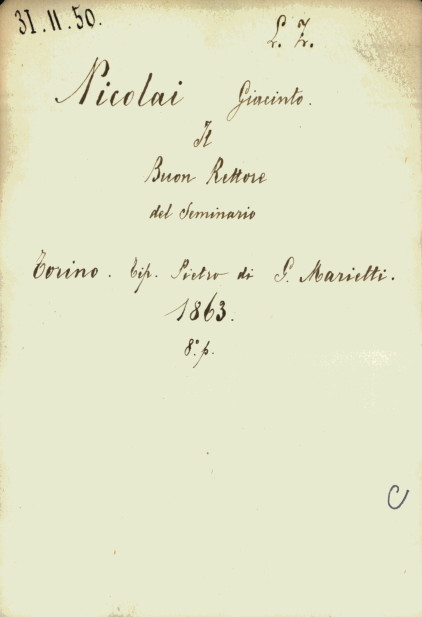 31.11.50.
L. Z.
Nicolai Giacinto.
Il
Buon Rettore
del Seminario
Torino. Tip. Pietro di G. Marietti.
1863.
8.º p.
C